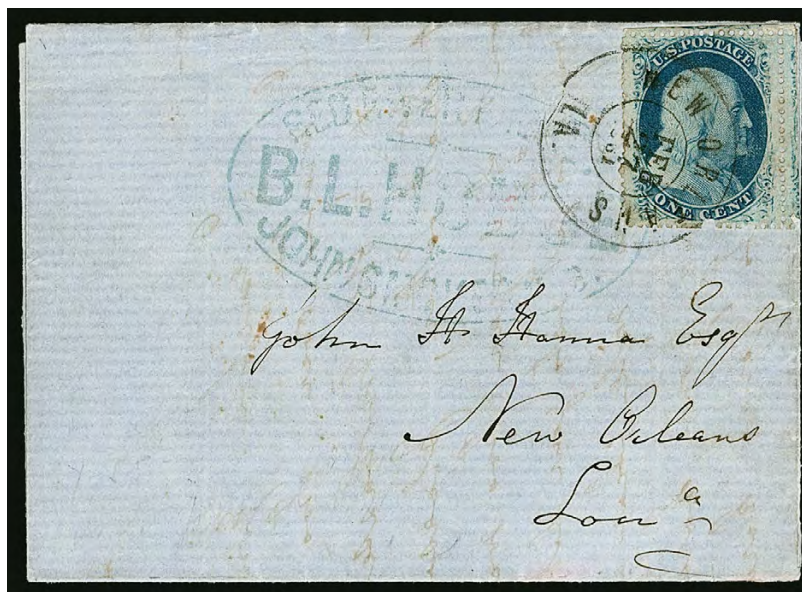 U.S. POSTAGE
ONE CENT
NEW ORLEANS
LA
FEB
27
RED RIVER
B.L.
JOHN
John H Hanna Esqr
New Orleans
Loua